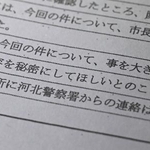 確認したところ、
は、今回の件について、市長
た。
今回の件について、事を大き
を秘密にしてほしいとのこ
所に河北警察署からの連絡は